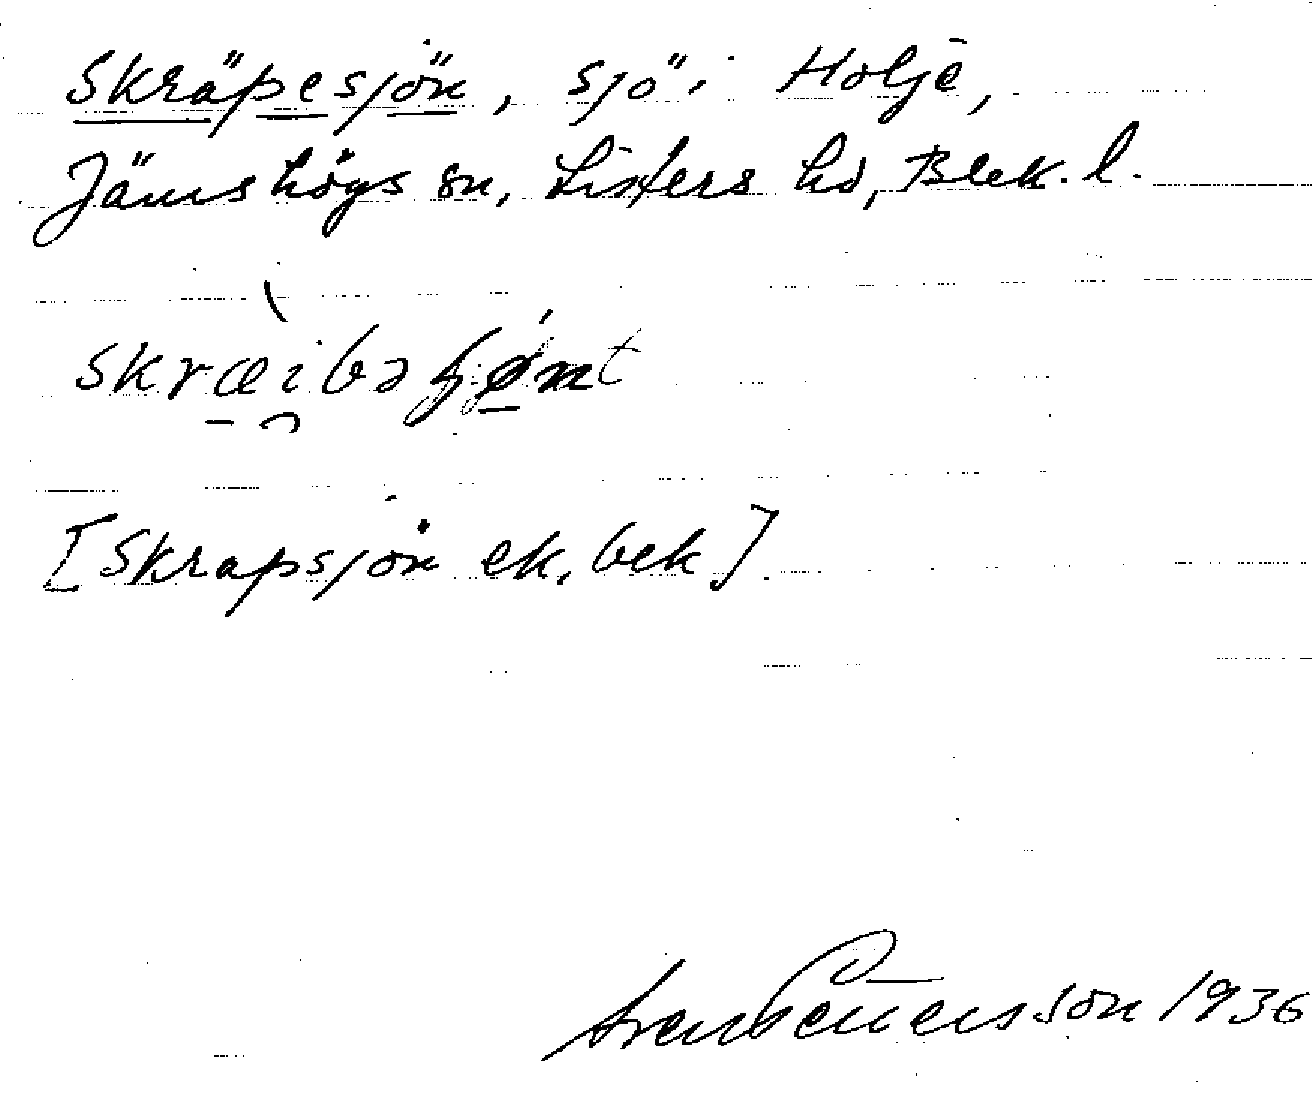 Skräpesjön, sjö i Holje,
Jämshögs sn, Listers hd, Blek. l.
[Skrapsjön ek. bek]
Sven Benson 1936